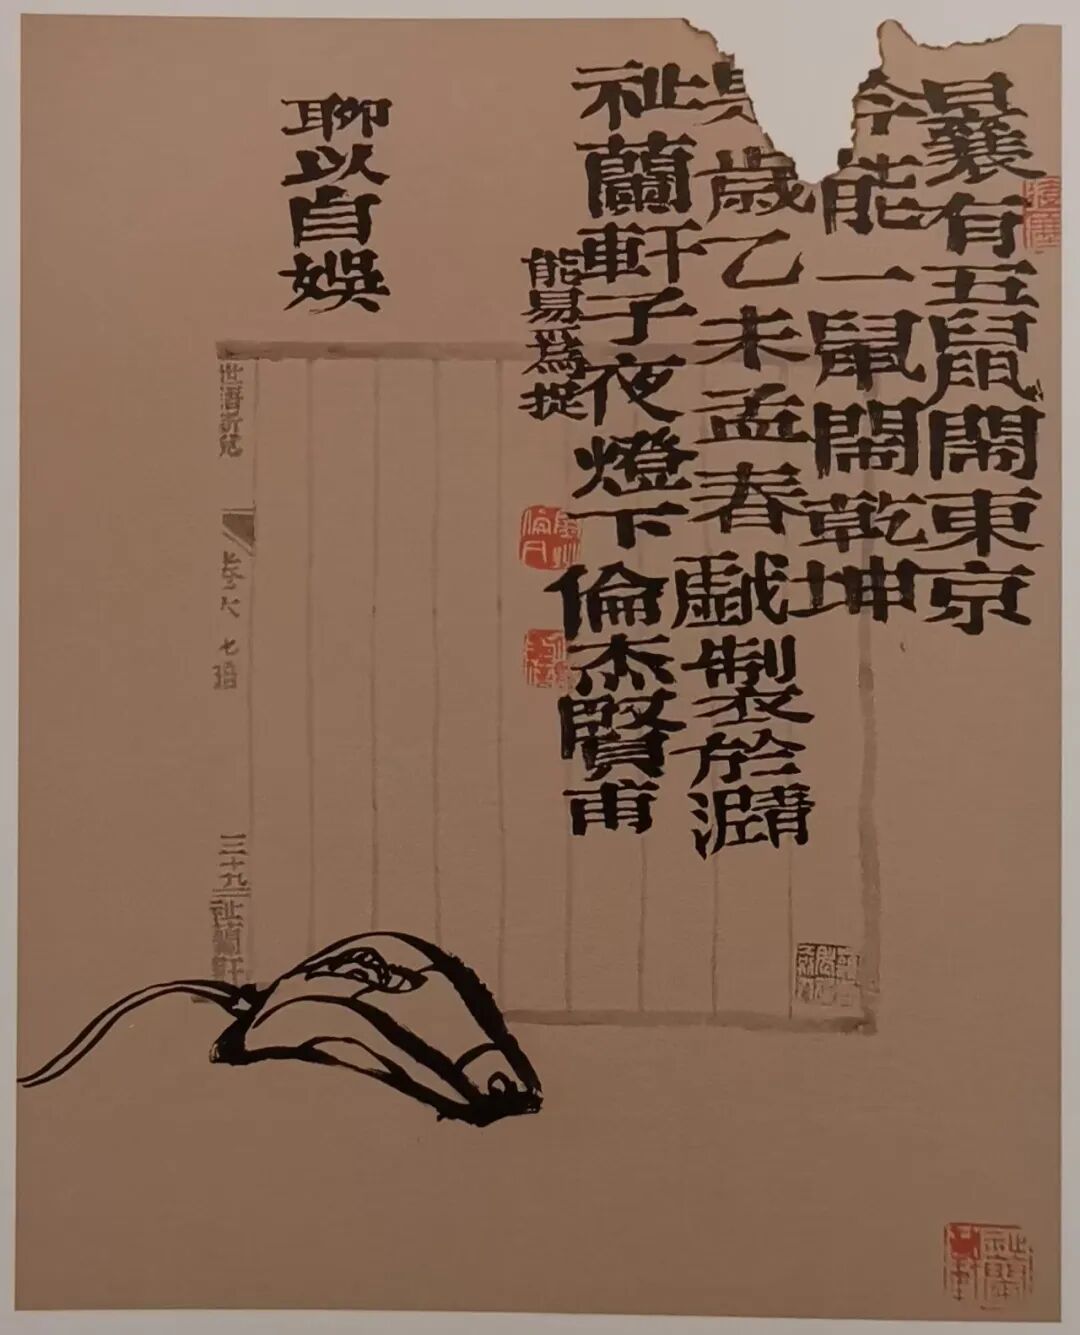 曩有五鼠鬧東京
今能一鼠鬧乾坤
是歲乙未孟春戲製於
祉蘭軒子夜燈下倫杰賢甫
能易爲捉
聊以自娛
三十九
祉蘭軒